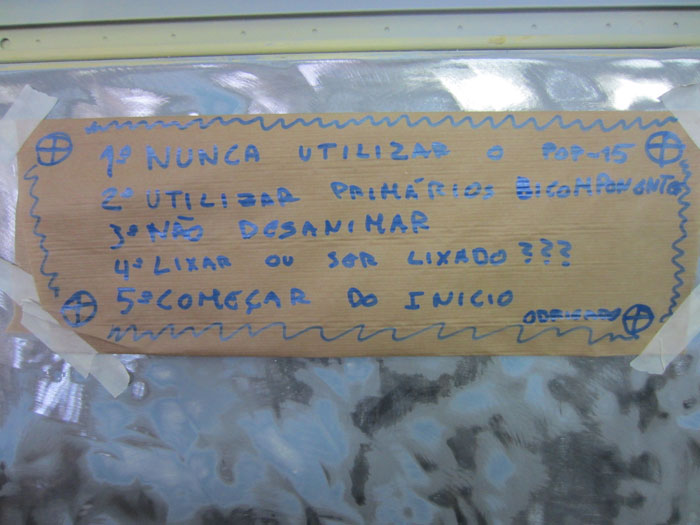 1º NUNCA UTILIZAR O POP-15
2º UTILIZAR PRIMÁRIOS BICOMPONENTE
3º NÃO DESANIMAR
4º LIXAR OU SER LIXADO???
5º COMEÇAR DO INICIO
OBRIGADO